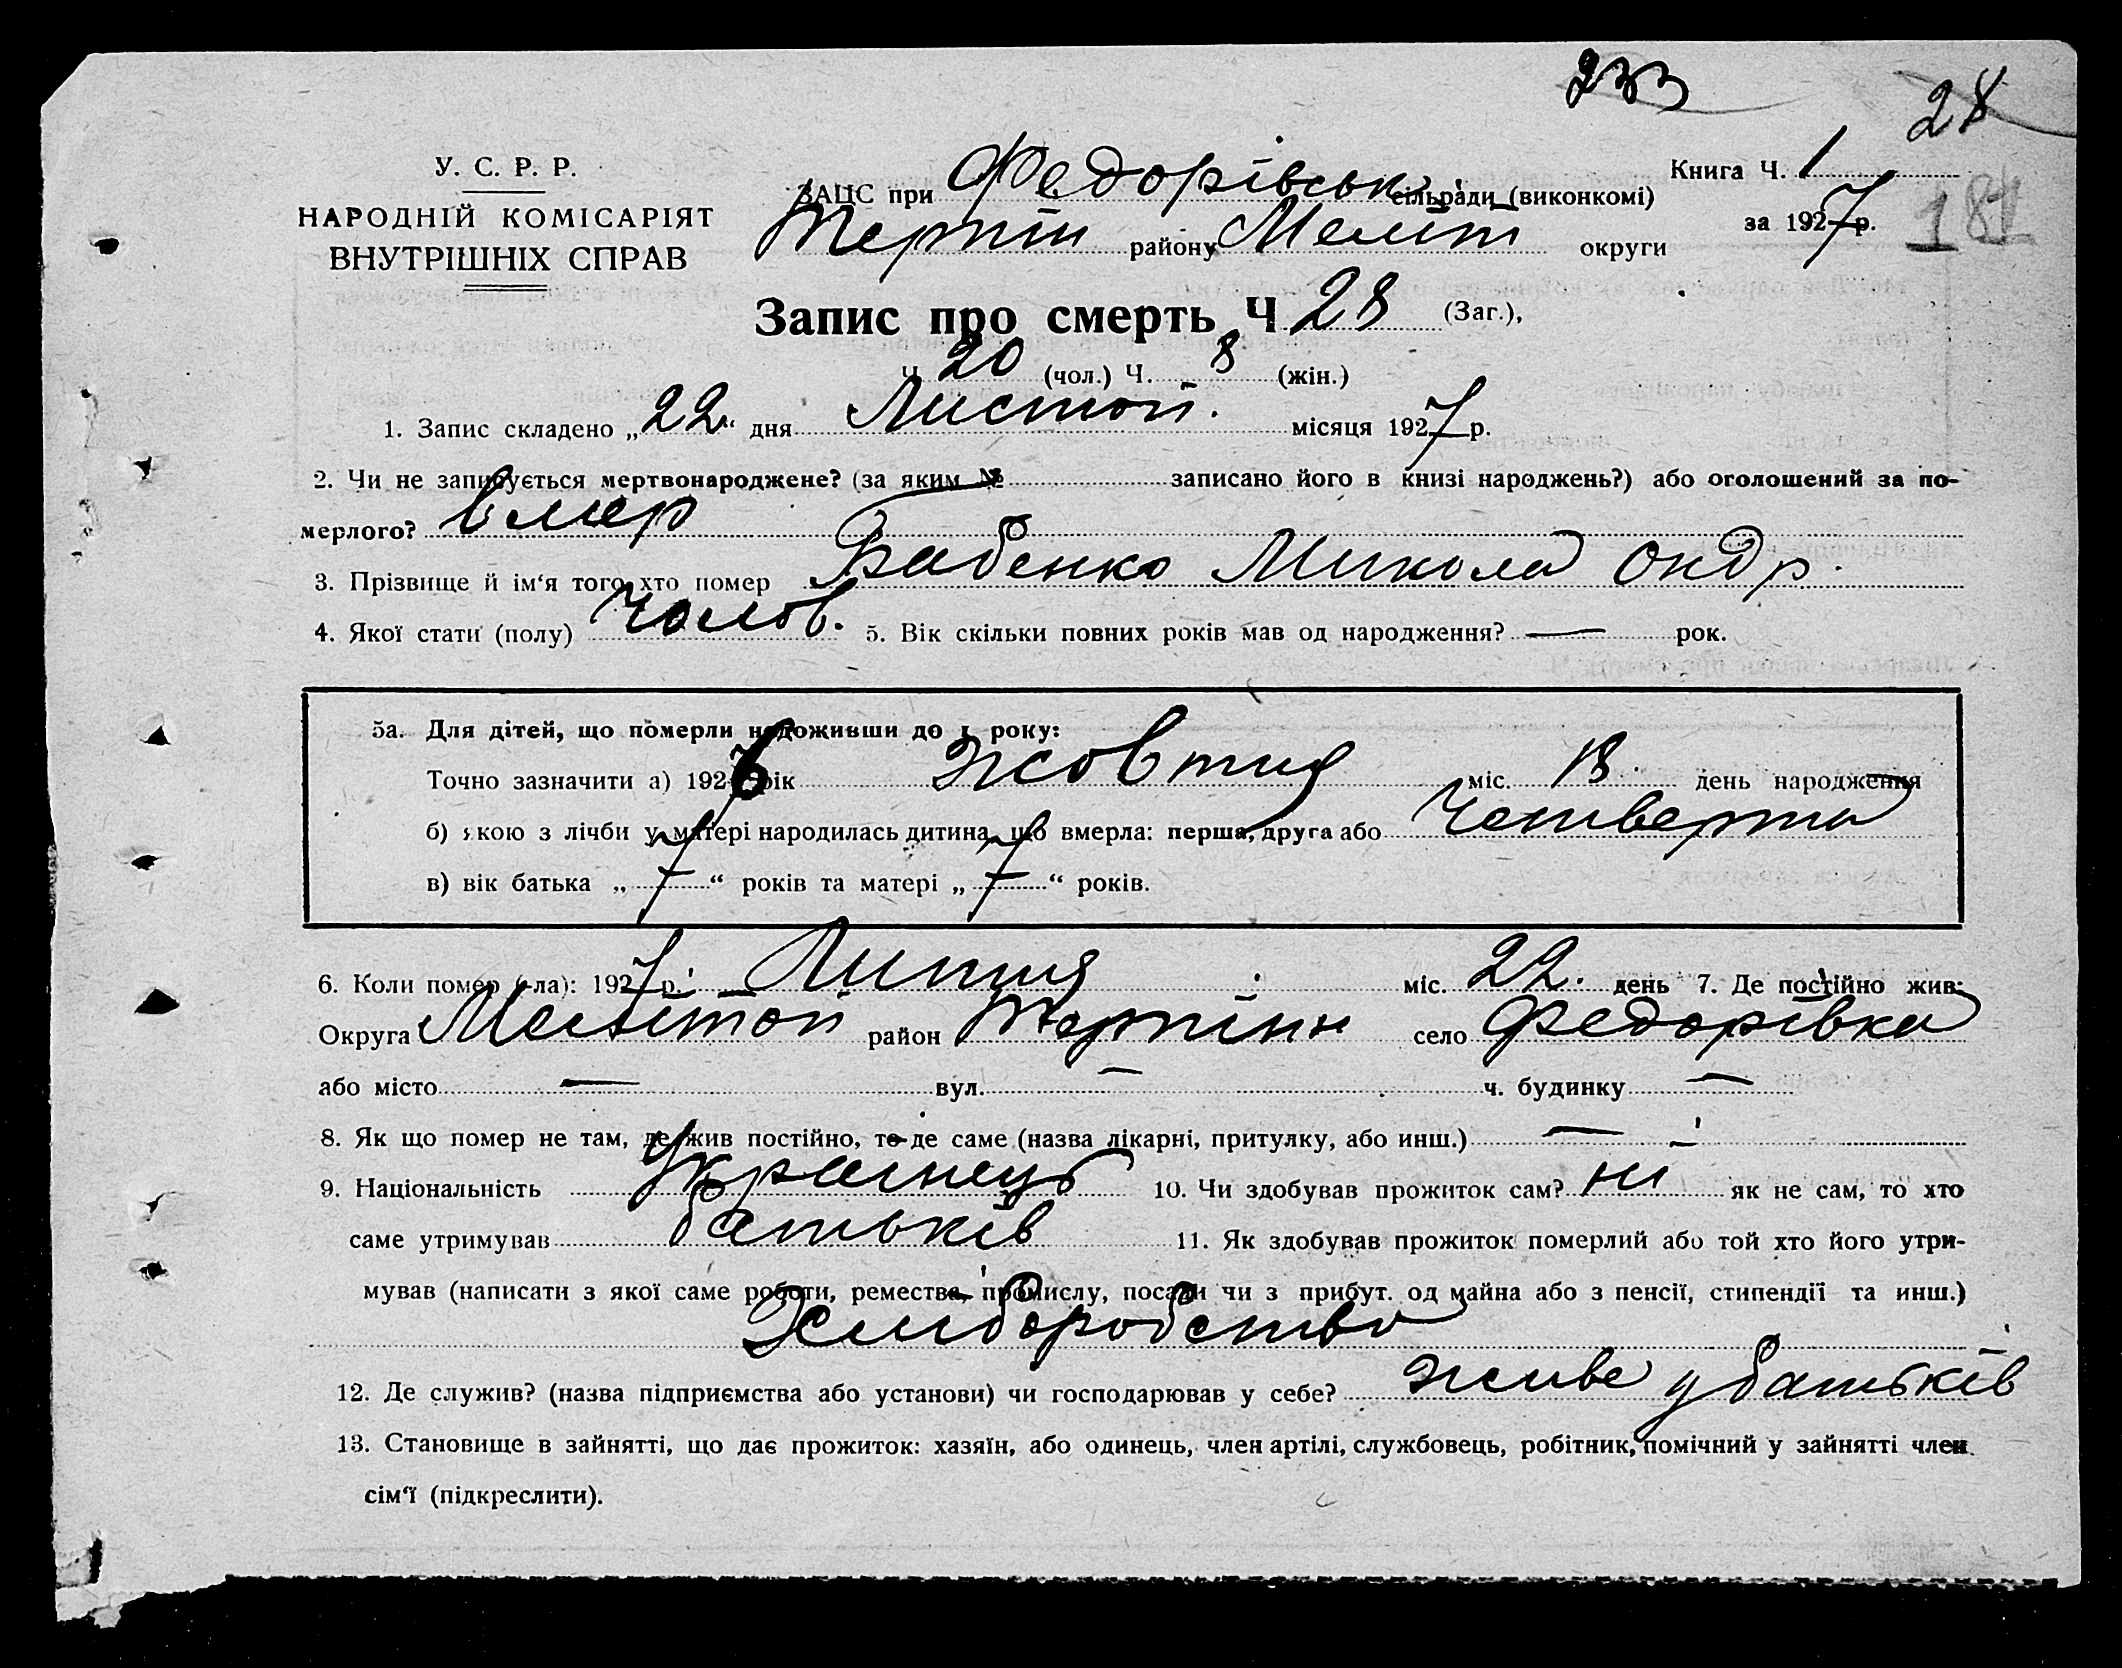 233
28
У. С. Р. Р.
НАРОДНІЙ КОМІСАРІЯТ
ВНУТРІШНІХ СПРАВ
ЗАЦС при Федорівськ. сільради (виконкомі)
Терпін району Меліт округи
Книга Ч. 1
за 1927 р.
181
Запис про смерть Ч 28 (Заг.),
Ч 20 (чол.) Ч. 8 (жін.)
1. Запис складено „22“ дня Листоп. місяця 1927 р.
2. Чи не записується мертвонароджене? (за яким № записано його в книзі народжень?) або оголошений за по-
мерлого? вмер
3. Прізвище й ім'я того хто помер Бабенко Микола Ондр.
4. Якої стати (полу) чолов. 5. Вік скільки повних років мав од народження? — рок.
5а. Для дітей, що померли недоживши до 1 року:
Точно зазначити а) 1926 рік жовтня міс. 18 день народження
б) якою з лічби у матері народилась дитина, що вмерла: перша, друга або четверта
в) вік батька „7“ років та матері „7“ років.
6. Коли помер (-ла): 1927 р. Липня міс. 22. день 7. Де постійно жив:
Округа Мелітоп район Терпінн село Федорівка
або місто — вул. — ч. будинку —
8. Як що помер не там, де жив постійно, то де саме (назва лікарні, притулку, або инш.) —
9. Національність Украінець 10. Чи здобував прожиток сам? ні як не сам, то хто
саме утримував батьків 11. Як здобував прожиток померлий або той хто його утри-
мував (написати з якої саме роботи, ремества, промислу, посади чи з прибут. од майна або з пенсії, стипендії та инш.)
Хліборобство
12. Де служив? (назва підприємства або установи) чи господарював у себе? живе у батьків
13. Становище в зайнятті, що дає прожиток: хазяїн, або одинець, член артілі, службовець, робітник, помічний у зайнятті член
сім'ї (підкреслити).